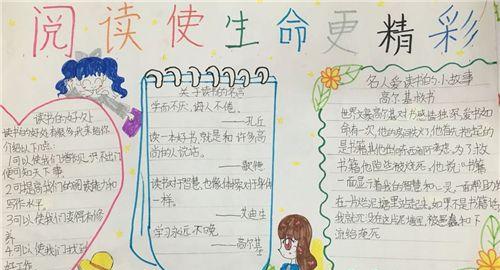 阅读使生命更精彩
读书的好处
读书的好处有很多我来给你
介绍以下几点:
1.可以使我们增长见识不出门
便可知天下事
2.可提高我们的阅读能力和
写作水平
3.可以使我们变得有修
养
4.可以使我们找到
好工作
关于读书的名言
学而不厌,诲人不倦。
——孔丘
读一本好书,就是和许多高
尚的人说话。
——歌德
读书对于智慧,也像体操对于身体
一样。
——艾迪生
学习永远不晚
——高尔基
名人爱读书的小故事
高尔基救书
世界文豪高尔基对书感情独深,爱书如
命有一次,他的房间失火了他首先抱起的
是书籍,其他的
书籍,他险些被烧死。他说:"书籍
一面启示着我的智慧和心灵,一面帮助我
在一片烂泥塘里站起来,如果不是书籍的话,
我就沉没在这片泥塘里,被愚蠢和下
流给淹死